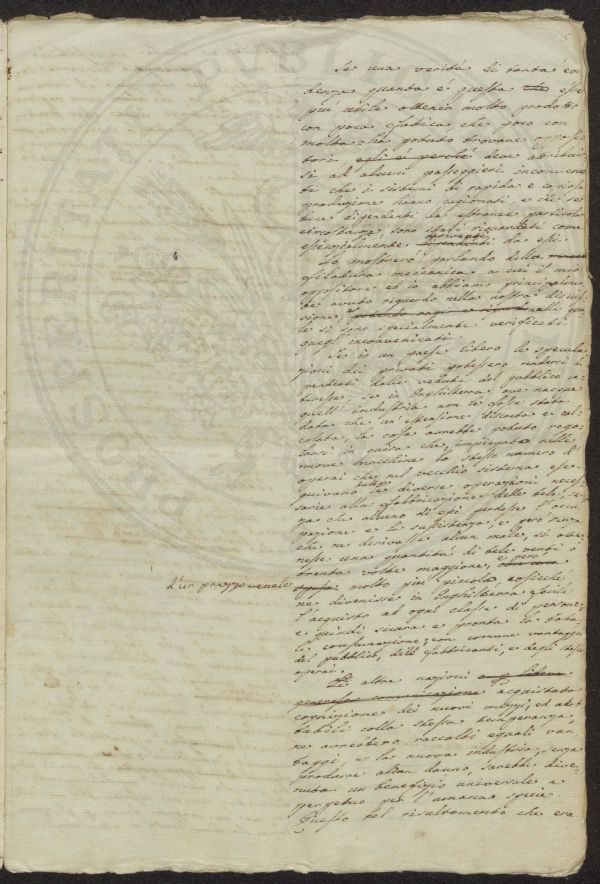 Se una verità di tanta evi
denza quanta é questa esse
più utile ottener molto prodotto
con poca fatica che poco con
molta ha potuto trovare opposi
tori, egli é perché deve attribuir
si ad alcuni passeggieri inconvenien
ti che i sistemi di rapida e copiosa
produzione hanno cagionati, e che seb
bene dipendenti da estranee particola
circostanze, sono stati riguardati come
provenienti
essenzialmente da essi
Lo mostrerò parlando della
filatura meccanica a cui il mio
oppositore ed io abbiamo principalmen
te avuto riguardo nella nostra discus
sione nella qua
le si sono specialmente verificati
quegli inconvenienti.
Se in un paese libero le specula
zioni dei privati potessero andarsi
dalle vedute del pubblico in
teresse, se in Inghilterra ove nacque
quell'industria non le fosse stata
data che un'estensione discreta e cal
colata, la cosa avrebbe potuto rego
larsi in guisa che, impiegato nelle
nuove macchine lo stesso numero di
operai che nel vecchio sistema ese
tutte
guivano le diverse operazioni neces
sarie alla fabbricazione delle tele, sen
za che alcuno di essi perdesse l'occu
pazione e la sussistenza, e però senza
che ne derivasse alcun male, si otte
nesse una quantità di tele venti o
trenta volte maggiore, e però
d'un prezzo venale molto più piccolo, cosicché
ne divenisse in Inghilterra facile
l'acquisto ad ogni classe di persone,
e quindi sicura e pronta la tota
le consumazione, con comune vantaggio
del pubblico, dei fabbricanti, e degli stessi
operai.
Le altre nazioni e
generosa comunicazione acquistata
cognizione dei nuovi mezzi, ed adot
tabili colla stessa temperanza,
ne avrebbero raccolti eguali van
taggi, e la nuova industria, senza
produrre alcun danno, sarebbe dive
nuta un beneficio universale e
perpetuo per l'umana specie.
Questo bel risultamento che era